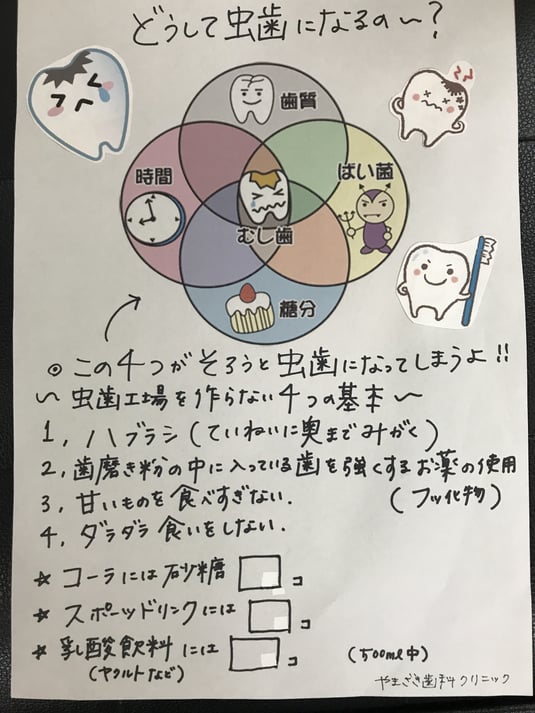 どうして虫歯になるの〜?
歯質
時間
ばい菌
むし歯
糖分
◎この4つがそろうと虫歯になってしまうよ!!
〜虫歯工場を作らない4つの基本〜
1, ハブラシ(ていねいに奥までみがく)
2, 歯磨き粉の中に入っている歯を強くするお薬の使用
(フッ化物)
3, 甘いものを食べすぎない.
4, ダラダラ食いをしない.
☆ コーラには砂糖 コ
☆ スポーツドリンクには コ
☆ 乳酸飲料には コ
(ヤクルトなど)
(500ml中)
やまざき歯科クリニック